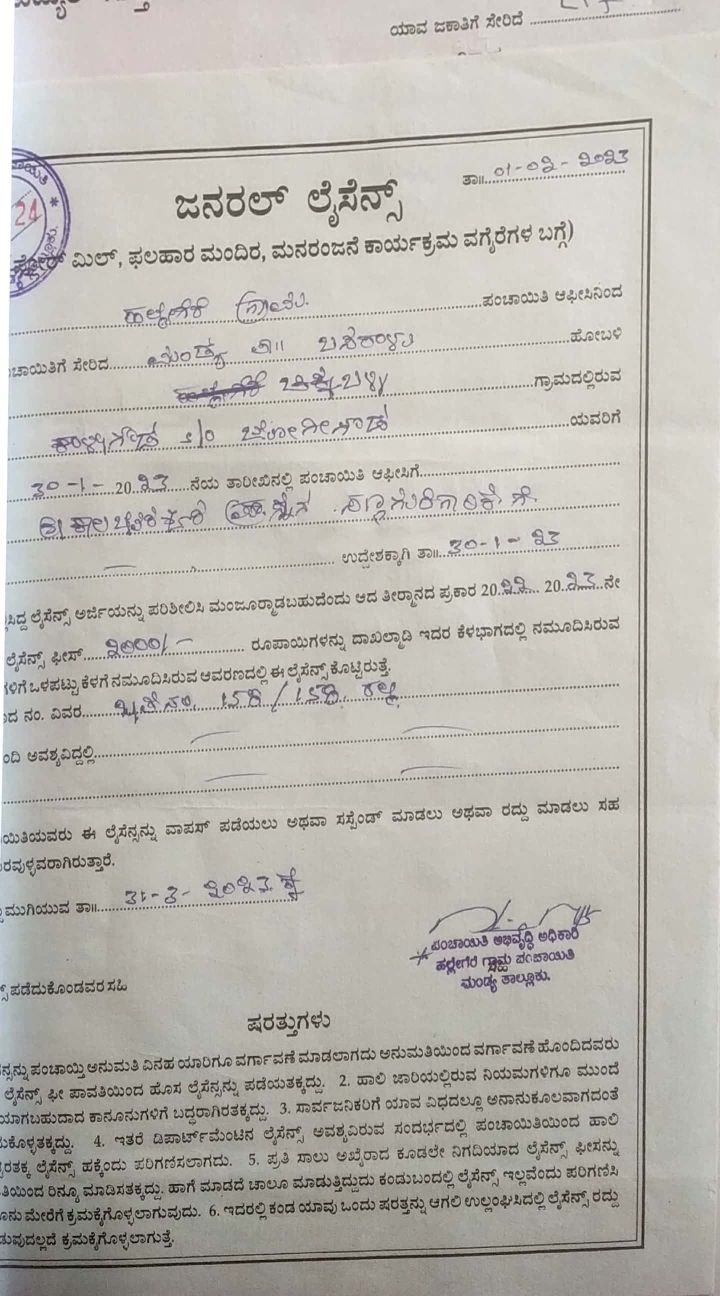 ಯಾವ ಜಕಾತಿಗೆ ಸೇರಿದೆ
24
ತಾ॥ 01-02-2023
ಜನರಲ್ ಲೈಸೆನ್ಸ್
ಮಿಲ್, ಫಲಹಾರ ಮಂದಿರ, ಮನರಂಜನೆ ಕಾರ್ಯಕ್ರಮ ವಗೈರೆಗಳ ಬಗ್ಗೆ)
ಹಲ್ಲೇಗೆರೆ ಗ್ರಾಮ ಪಂಚಾಯಿತಿ ಆಫೀಸಿನಿಂದ
ಚಾಯಿತಿಗೆ ಸೇರಿದ ಮಂಡ್ಯ ತಾ॥ ಬಸರಾಳು ಹೋಬಳಿ
ಗ್ರಾಮದಲ್ಲಿರುವ
S/o ಯವರಿಗೆ
30-1-2023 ನೆಯ ತಾರೀಖಿನಲ್ಲಿ ಪಂಚಾಯಿತಿ ಆಫೀಸಿಗೆ
ಶ್ರೀ ಕಾಲಭೈರವೇಶ್ವರ
ಉದ್ದೇಶಕ್ಕಾಗಿ ತಾ॥ 30-1-23
ಸಿದ್ದ ಲೈಸೆನ್ಸ್ ಅರ್ಜಿಯನ್ನು ಪರಿಶೀಲಿಸಿ ಮಂಜೂರ್‍ಮಾಡಬಹುದೆಂದು ಆದ ತೀರ್ಮಾನದ ಪ್ರಕಾರ 2022 2023 ನೇ
ಲೈಸೆನ್ಸ್ ಫೀಸ್ 2000/- ರೂಪಾಯಿಗಳನ್ನು ದಾಖಲ್ಮಾಡಿ ಇದರ ಕೆಳಭಾಗದಲ್ಲಿ ನಮೂದಿಸಿರುವ
ಗಳಿಗೆ ಒಳಪಟ್ಟು ಕೆಳಗೆ ನಮೂದಿಸಿರುವ ಆವರಣದಲ್ಲಿ ಈ ಲೈಸೆನ್ಸ್ ಕೊಟ್ಟಿರುತ್ತೆ.
ದ ನಂ. ವಿವರ 158/158
ಂದಿ ಅವಶ್ಯವಿದ್ದಲ್ಲಿ
ಯಿತಿಯವರು ಈ ಲೈಸೆನ್ಸನ್ನು ವಾಪಸ್ ಪಡೆಯಲು ಅಥವಾ ಸಸ್ಪೆಂಡ್ ಮಾಡಲು ಅಥವಾ ರದ್ದು ಮಾಡಲು ಸಹ
ರವುಳ್ಳವರಾಗಿರುತ್ತಾರೆ.
ಮುಗಿಯುವ ತಾ॥ 31-3-2023 ಕ್ಕೆ
ಪಂಚಾಯಿತಿ ಅಭಿವೃದ್ಧಿ ಅಧಿಕಾರಿ
ಹಲ್ಲೇಗೆರೆ ಗ್ರಾಮ ಪಂಚಾಯಿತಿ
ಮಂಡ್ಯ ತಾಲ್ಲೂಕು.
ಪಡೆದುಕೊಂಡವರ ಸಹಿ
ಷರತ್ತುಗಳು
ನ್ಸನ್ನು ಪಂಚಾಯ್ತಿ ಅನುಮತಿ ವಿನಹ ಯಾರಿಗೂ ವರ್ಗಾವಣೆ ಮಾಡಲಾಗದು ಅನುಮತಿಯಿಂದ ವರ್ಗಾವಣೆ ಹೊಂದಿದವರು
ಲೈಸೆನ್ಸ್ ಫೀ ಪಾವತಿಯಿಂದ ಹೊಸ ಲೈಸೆನ್ಸನ್ನು ಪಡೆಯತಕ್ಕದ್ದು. 2. ಹಾಲಿ ಜಾರಿಯಲ್ಲಿರುವ ನಿಯಮಗಳಿಗೂ ಮುಂದೆ
ಯಾಗಬಹುದಾದ ಕಾನೂನುಗಳಿಗೆ ಬದ್ಧರಾಗಿರತಕ್ಕದ್ದು. 3. ಸಾರ್ವಜನಿಕರಿಗೆ ಯಾವ ವಿಧದಲ್ಲೂ ಅನಾನುಕೂಲವಾಗದಂತೆ
ುಕೊಳ್ಳತಕ್ಕದ್ದು. 4. ಇತರೆ ಡಿಪಾರ್ಟ್‌ಮೆಂಟಿನ ಲೈಸೆನ್ಸ್ ಅವಶ್ಯವಿರುವ ಸಂದರ್ಭದಲ್ಲಿ ಪಂಚಾಯಿತಿಯಿಂದ ಹಾಲಿ
ರತಕ್ಕ ಲೈಸೆನ್ಸ್ ಹಕ್ಕೆಂದು ಪರಿಗಣಿಸಲಾಗದು. 5. ಪ್ರತಿ ಸಾಲು ಅಖೈರಾದ ಕೂಡಲೇ ನಿಗದಿಯಾದ ಲೈಸೆನ್ಸ್ ಫೀಸನ್ನು
ತಿಯಿಂದ ರಿನ್ಯೂ ಮಾಡಿಸತಕ್ಕದ್ದು. ಹಾಗೆ ಮಾಡದೆ ಚಾಲೂ ಮಾಡುತ್ತಿದ್ದುದು ಕಂಡುಬಂದಲ್ಲಿ ಲೈಸೆನ್ಸ್ ಇಲ್ಲವೆಂದು ಪರಿಗಣಿಸಿ
ೂನು ಮೇರೆಗೆ ಕ್ರಮಕೈಗೊಳ್ಳಲಾಗುವುದು. 6. ಇದರಲ್ಲಿ ಕಂಡ ಯಾವು ಒಂದು ಷರತ್ತನ್ನು ಆಗಲಿ ಉಲ್ಲಂಘಿಸಿದಲ್ಲಿ ಲೈಸೆನ್ಸ್ ರದ್ದು
ಡುವುದಲ್ಲದೆ ಕ್ರಮಕೈಗೊಳ್ಳಲಾಗುತ್ತೆ.